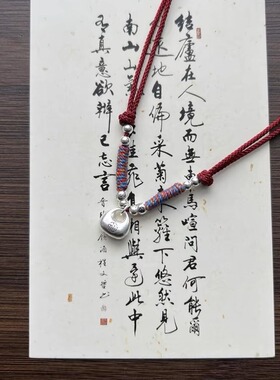 結廬在人境而無馬喧問君何能爾
遠地自偏采菊東籬下悠然見
南山山氣佳飛相與還此中
有真意欲辨已忘言